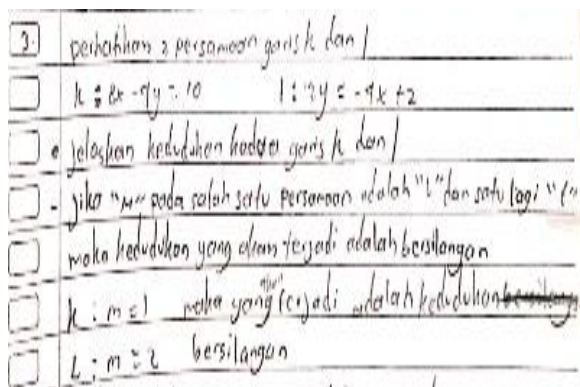 3. perhatikan 2 persamaan garis k dan l
k : 8x - 4y = 10 l : 2y = -4x + 2
jelaskan kedudukan kedua garis k dan l
- jika "M" pada salah satu persamaan adalah "1" dan satu lagi
maka kedudukan yang akan terjadi adalah bersilangan
k : m = 1 maka yang akan terjadi adalah kedudukan
L : m = 2 bersilangan